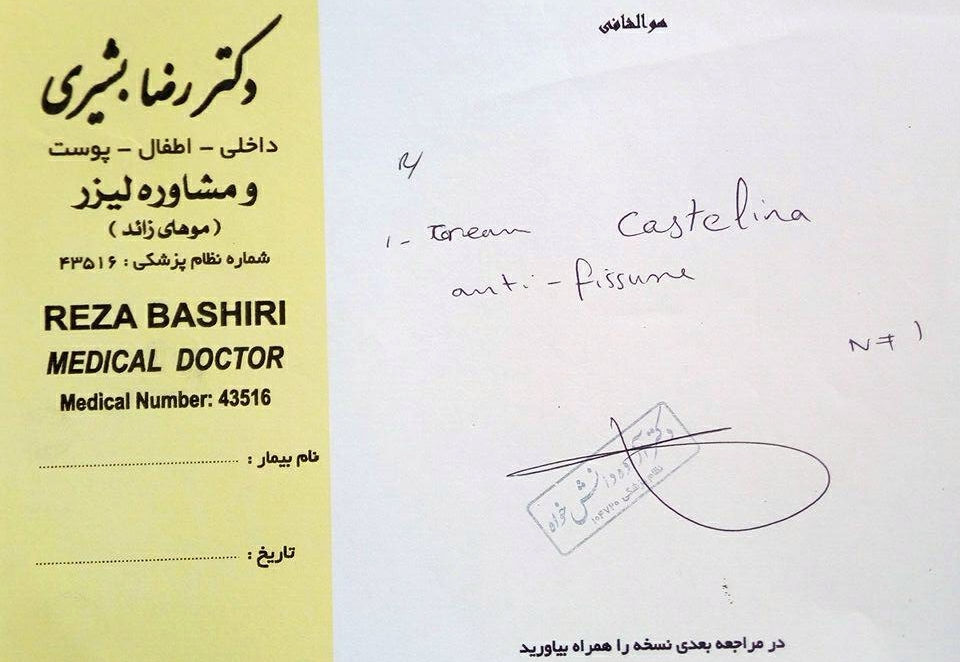 دکتر رضا بشیری
داخلی - اطفال - پوست
و مشاوره لیزر
(موهای زائد)
شماره نظام پزشکی : ۴۳۵۱۶
REZA BASHIRI
MEDICAL DOCTOR
Medical Number: 43516
نام بیمار :
تاریخ :
هوالشافی
R/
1- cream Castelina
anti-fissure
N=1
دکتر دانش خواه
نظام پزشکی ۱۵۴۷۲۵
در مراجعه بعدی نسخه را همراه بیاورید